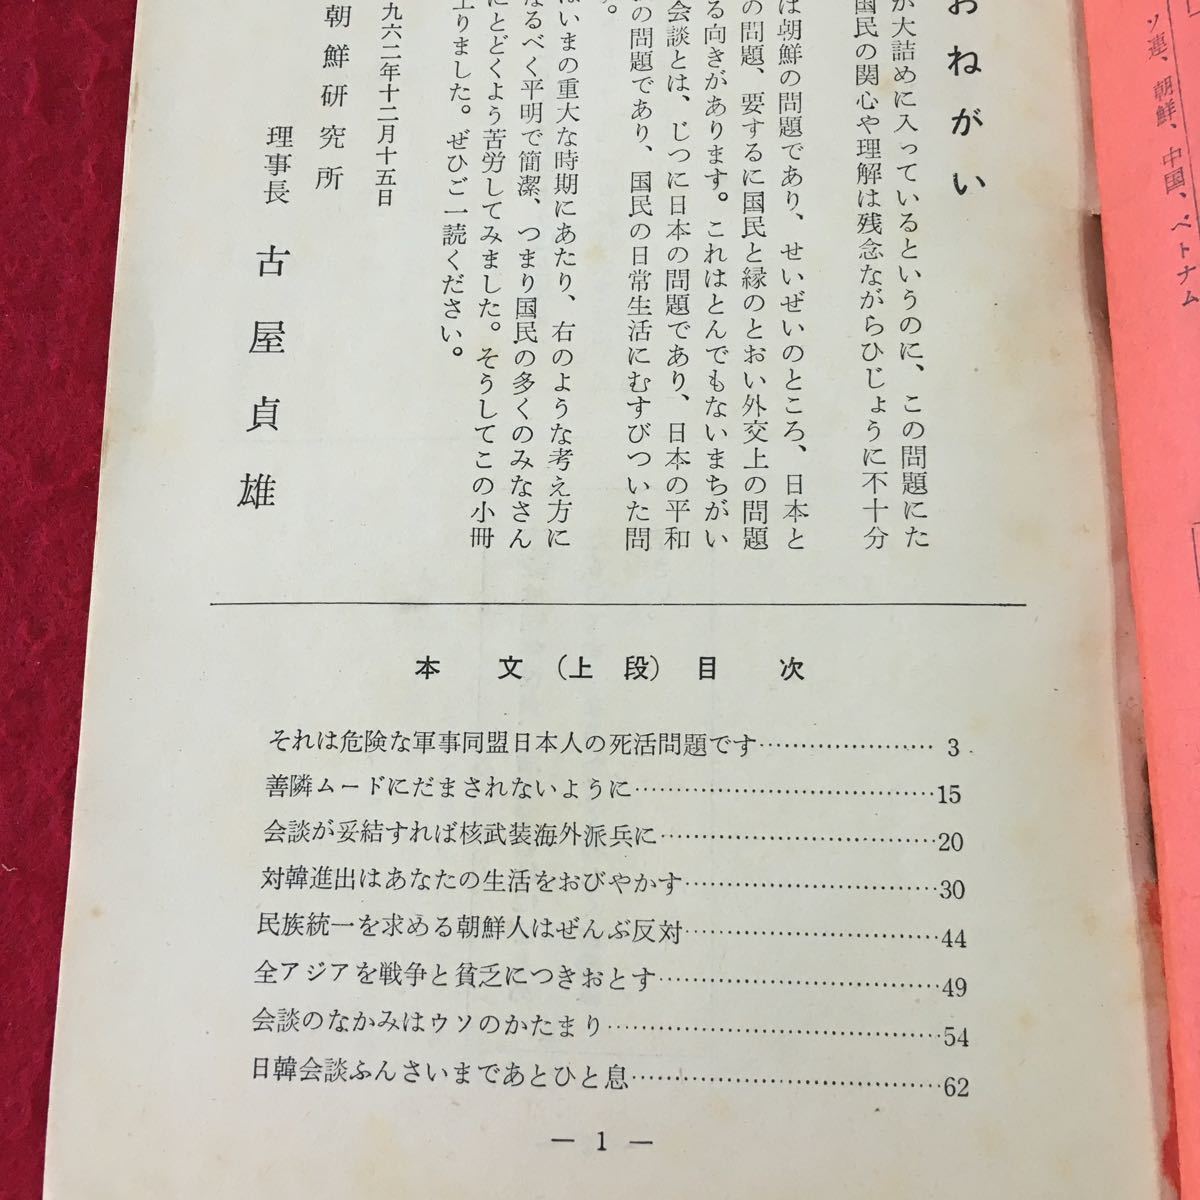 おねがい
が大詰めに入っているというのに、この問題にた
国民の関心や理解は残念ながらひじょうに不十分
は朝鮮の問題であり、せいぜいのところ、日本と
の問題、要するに国民と縁のとおい外交上の問題
る向きがあります。これはとんでもないまちがい
会談とは、じつに日本の問題であり、日本の平和
の問題であり、国民の日常生活にむすびついた問
。
いまの重大な時期にあたり、右のような考え方に
なるべく平明で簡潔、つまり国民の多くのみなさん
にとどくよう苦労してみました。そうしてこの小冊
上りました。ぜひご一読ください。
九六二年十二月十五日
朝鮮研究所
理事長 古屋貞雄
本文(上段)目次
それは危険な軍事同盟日本人の死活問題です…………………3
善隣ムードにだまされないように………………………………15
会談が妥結すれば核武装海外派兵に……………………………20
対韓進出はあなたの生活をおびやかす…………………………30
民族統一を求める朝鮮人はぜんぶ反対…………………………44
全アジアを戦争と貧乏につきおとす……………………………49
会談のなかみはウソのかたまり…………………………………54
日韓会談ふんさいまであとひと息………………………………62
— 1 —
ソ連、朝鮮、中国、ベトナム